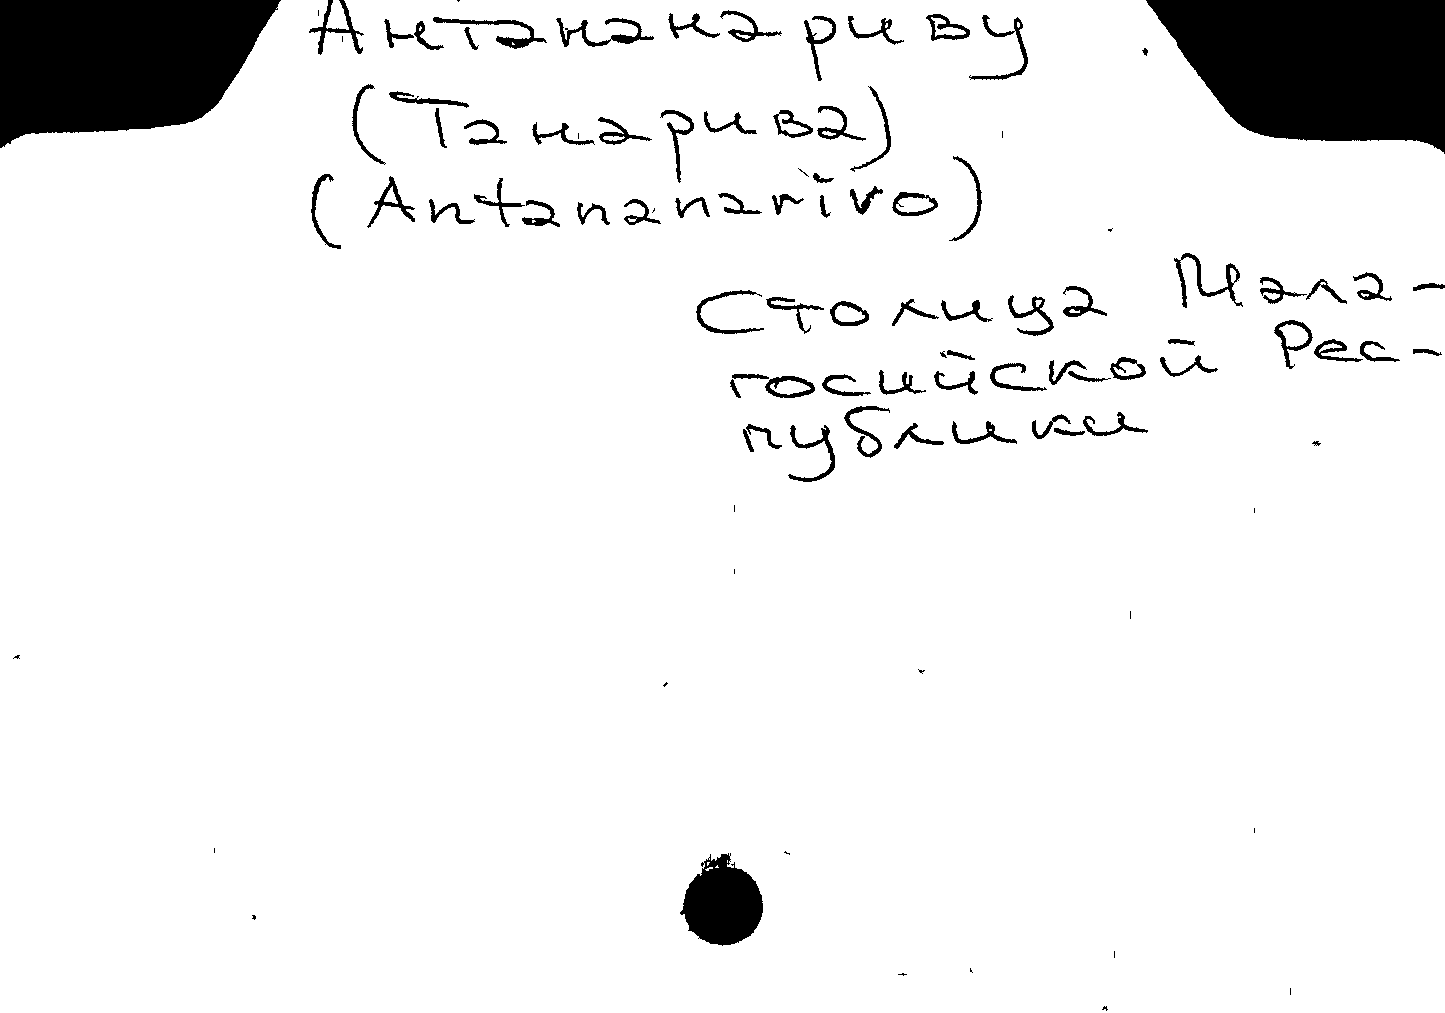 Антананариву
(Танарива)
(Antananarivo)
Столица Мала-
госийской Рес-
публики